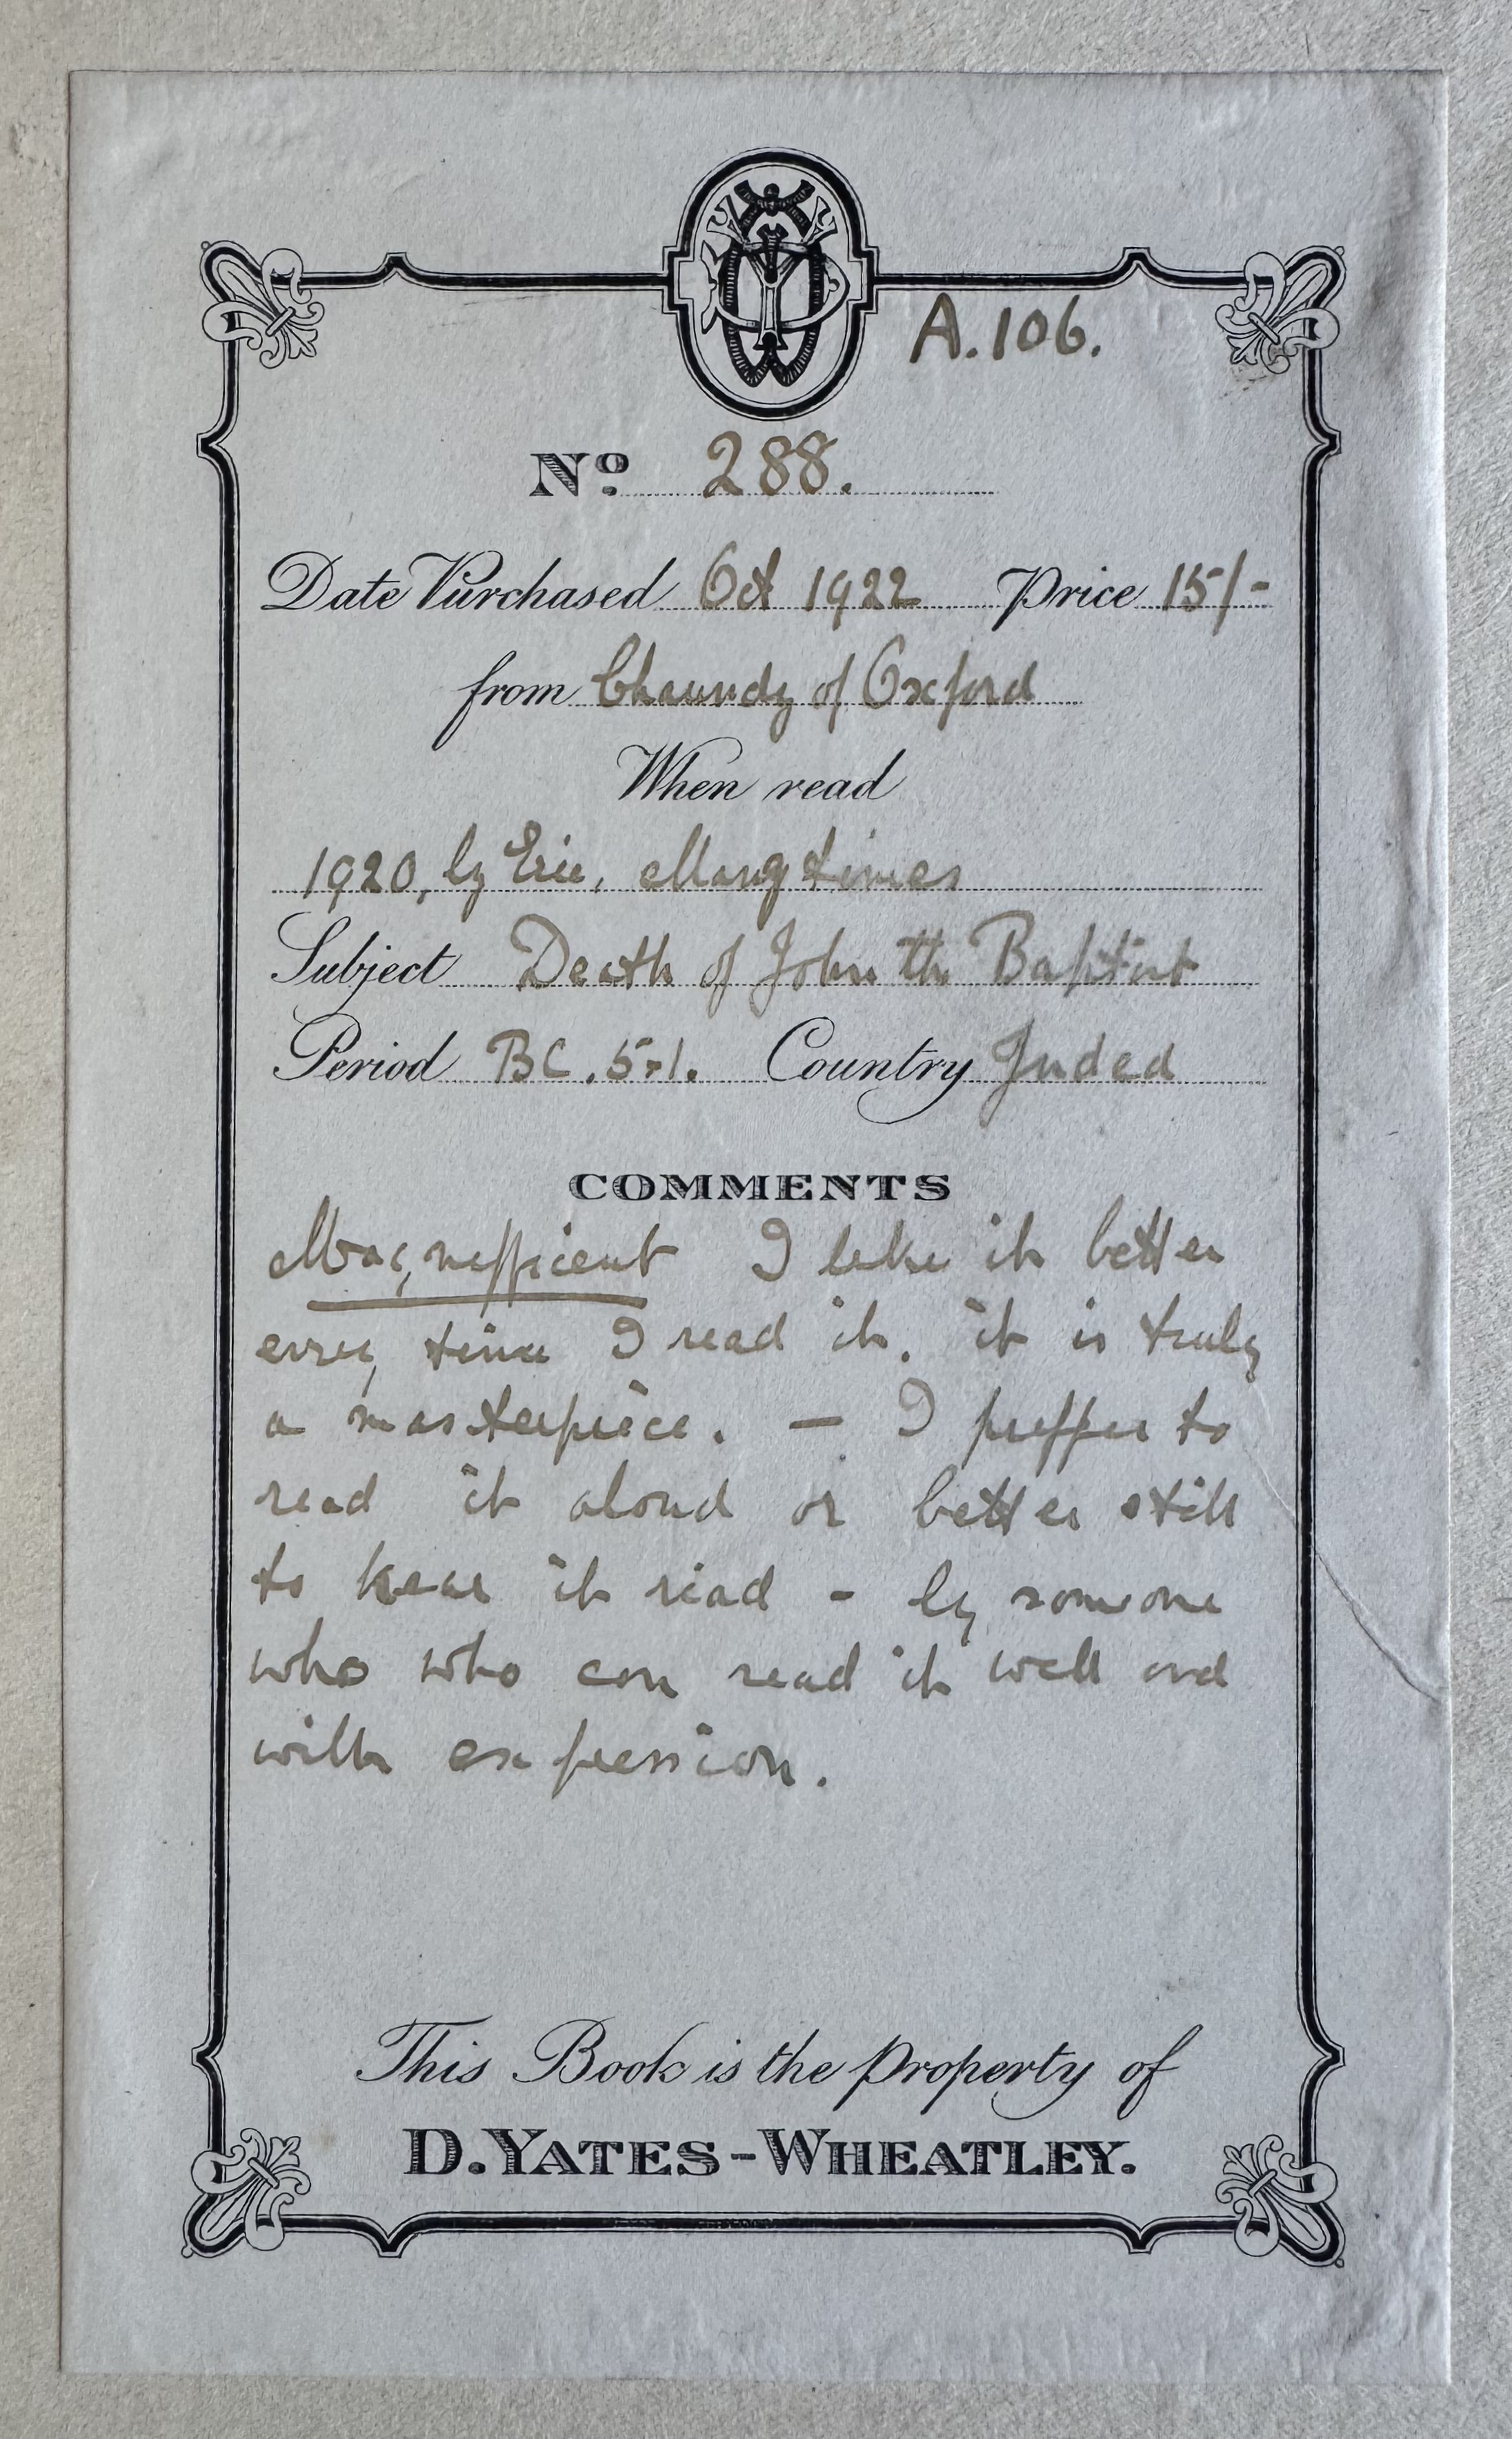 A.106.
No. 288.
Date Purchased Oct 1922 Price 15/-
from Chaundy of Oxford
When read
1920, by Eric, Many times
Subject Death of John the Baptist
Period BC. 5-1. Country Judea
COMMENTS
Magnefficent I like it better
every time I read it. it is truly
a masterpiece. — I preffer to
read it aloud or better still
to hear it read - by someone
who who can read it well and
with expression.
This Book is the Property of
D. YATES-WHEATLEY.